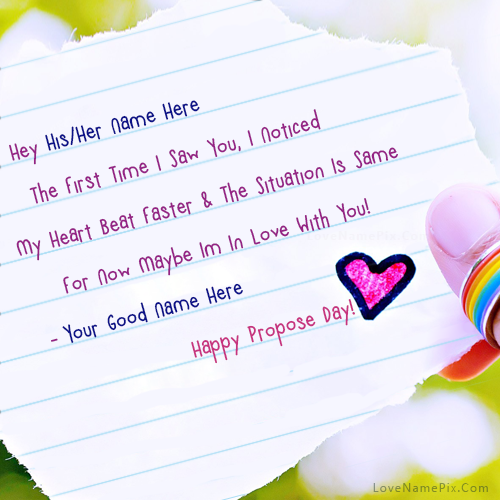 Hey His/Her Name Here
The First Time I Saw You, I Noticed
My Heart Beat Faster & The Situation Is Same
For Now Maybe Im In Love With You!
- Your Good Name Here
Happy Propose Day!
LoveNamePix.Com